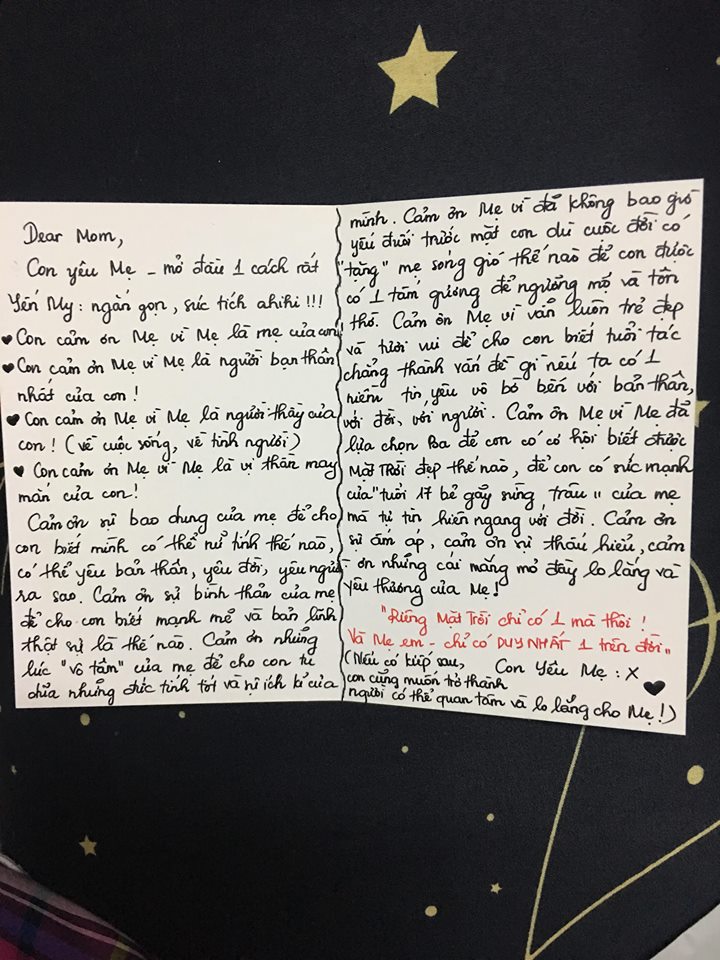 Dear Mom,
Con yêu Mẹ - mở đầu 1 cách rất
Yến My: ngắn gọn, súc tích ahihi !!!
♥ Con cảm ơn Mẹ vì Mẹ là mẹ của con!
♥ Con cảm ơn Mẹ vì Mẹ là người bạn thân
nhất của con !
♥ Con cảm ơn Mẹ vì Mẹ là người thầy của
con ! (về cuộc sống, về tình người)
♥ Con cảm ơn Mẹ vì Mẹ là vị thần may
mắn của con!
Cảm ơn sự bao dung của mẹ để cho
con biết mình có thể nữ tính thế nào,
có thể yêu bản thân, yêu đời, yêu người
ra sao. Cảm ơn sự bình thản của mẹ
để cho con biết mạnh mẽ và bản lĩnh
thật sự là thế nào. Cảm ơn những
lúc "vô tâm" của mẹ để cho con từ
những đức tính tốt và sự ích kỉ của
mình. Cảm ơn Mẹ vì đã không bao giờ
yếu đuối trước mặt con dù cuộc đời có
"tặng" mẹ sóng gió thế nào để con được
có 1 tấm gương để ngưỡng mộ và tôn
thờ. Cảm ơn Mẹ vì vẫn luôn trẻ đẹp
và tươi vui để cho con biết tuổi tác
chẳng thành vấn đề gì nếu ta có 1
niềm tin, yêu vô bờ bến với bản thân,
với đời, với người. Cảm ơn Mẹ vì Mẹ đã
lựa chọn Ba để con có cơ hội biết được
Mặt Trời đẹp thế nào, để con có sức mạnh
của "tuổi 17 bẻ gãy sừng trâu" của mẹ
mà tự tin hiên ngang với đời. Cảm ơn
sự ấm áp, cảm ơn sự thấu hiểu, cảm
ơn những cái mắng mỏ đầy lo lắng và
yêu thương của Mẹ!
"Riêng Mặt Trời chỉ có 1 mà thôi !
Và Mẹ em - chỉ có DUY NHẤT 1 trên đời"
(Nếu có kiếp sau, Con Yêu Mẹ : X
con cũng muốn trở thành
người có thể quan tâm và lo lắng cho Mẹ !)